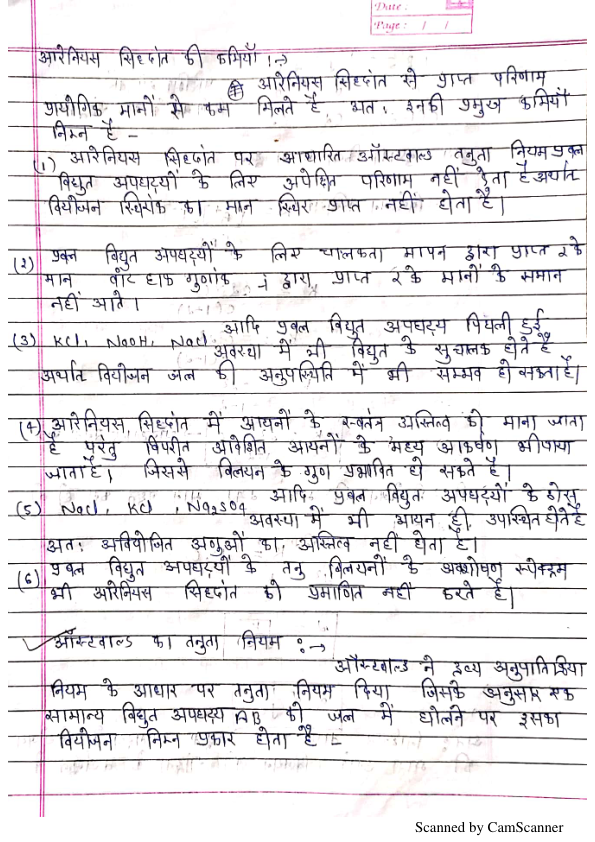 Date :
Page : / /
आरेनियस सिद्धांत की कमियाँ :→
आरेनियस सिद्धांत से प्राप्त परिणाम
प्रायोगिक मानों से कम मिलते है, अतः इनकी प्रमुख कमियाँ
निम्न है -
(1) आरेनियस सिद्धांत पर आधारित ऑस्टवाल्ड तनुता नियम प्रबल
विद्युत अपघट्यों के लिए अपेक्षित परिणाम नहीं देता है अर्थात
वियोजन स्थिरांक का मान स्थिर प्राप्त नहीं होता है।
(2) प्रबल विद्युत अपघट्यों के लिए चालकता मापन द्वारा प्राप्त α के
मान वांट हाफ गुणांक i द्वारा प्राप्त α के मानों के समान
नहीं आते।
(3) KCl, NaOH, NaCl आदि प्रबल विद्युत अपघट्य पिघली हुई
अवस्था में भी विद्युत के सुचालक होते है
अर्थात वियोजन जल की अनुपस्थिति में भी सम्भव हो सकता है।
(4) आरेनियस सिद्धांत में आयनों के स्वतंत्र अस्तित्व को माना जाता
है परंतु विपरीत आवेशित आयनों के मध्य आकर्षण भी पाया
जाता है, जिससे विलयन के गुण प्रभावित हो सकते है।
(5) NaCl, KCl, Na2SO4 आदि प्रबल विद्युत अपघट्यों के ठोस
अवस्था में भी आयन ही उपस्थित होते है
अतः अवियोजित अणुओं का अस्तित्व नहीं होता है।
(6) प्रबल विद्युत अपघट्यों के तनु विलयनों के अवशोषण स्पेक्ट्रम
भी आरेनियस सिद्धांत को प्रमाणित नहीं करते है।
ऑस्टवाल्ड का तनुता नियम :→
ऑस्टवाल्ड ने द्रव्य अनुपाति क्रिया
नियम के आधार पर तनुता नियम दिया जिसके अनुसार एक
सामान्य विद्युत अपघट्य AB को जल में घोलने पर इसका
वियोजन निम्न प्रकार होता है -
Scanned by CamScanner